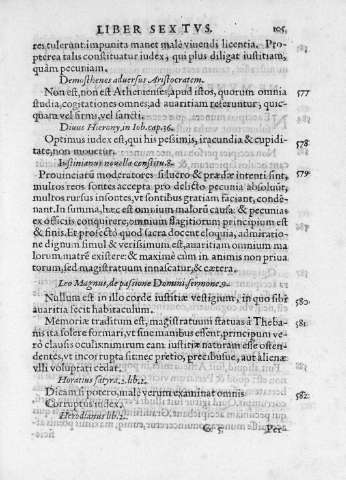 LIBER SEXTVS. 105
rei tulerunt impunita manet malè viuendi licentia. Pro-
pterea talis constituatur iudex, qui plus diligat iustitiam,
quàm pecuniam.
Demosthenes aduersus Aristocratem.
Non est, non est Athenienses, apud istos, quorum omnia 577
studia, cogitationes omnes, ad auaritiam referuntur, quic-
quam vel firmi, vel sancti.
Diuus Hierony, in Iob. cap. 36.
Optimus iudex est, qui his pessimis, iracundia & cupidi- 578
tate, non mouetur.
Iustinianus nouella constitu. 8.
Prouinciarū moderatores si lucro & prædæ intenti sint, 579
multos reos sontes accepta pro delicto pecunia absoluūt,
multos rursus insontes, vt sontibus gratiam faciant, condē-
nant. In summa, hæc est omnium malorū causa: & pecunias
ex officiis conquirere, omnium flagitiorum principium est
& finis. Et profectò quod sacra docent eloquia, admiratio-
ne dignum simul & verissimum est, auaritiam omnium ma
lorum matrē existere: & maximè cùm in animis non priua
torum, sed magistratuum innascatur, & cætera.
Leo Magnus, de passione Domini sermone. 9.
Nullum est in illo corde iustitiæ vestigium, in quo sibi 580
auaritia fecit habitaculum.
Memoriæ traditum est, magistratuum statuas à Theba- 581
nis ita solere formari, vt sine manibus essent, principum ve-
rò clausis oculis: nimirum eam iustitiæ naturam esse osten-
dentes, vt incorrupta sit nec pretio, precibusue, aut alienæ
vlli voluptati cedat.
Horatius satyra. 2. lib. 2.
Dicam si potero, malè verum examinat omnis 582
Corruptus iudex.
Herodianus lib. 2.
G 5 Per-